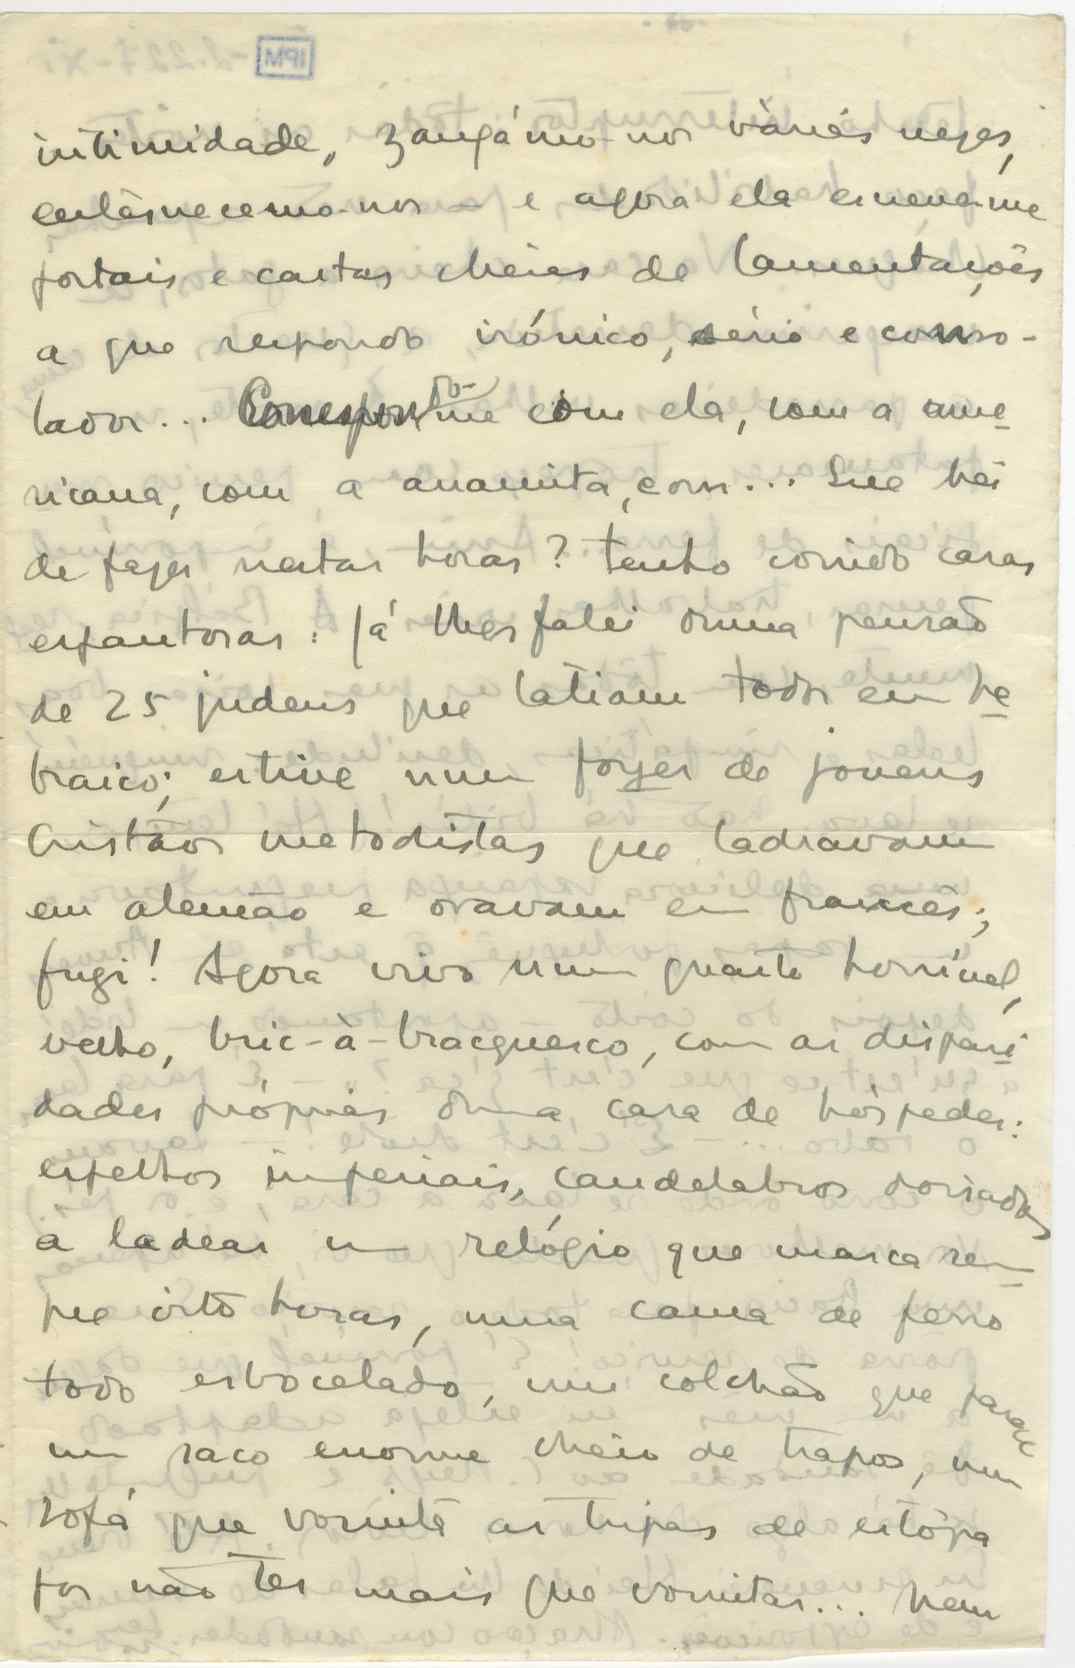 intimidade, zangámo-nos vàriàs vezes,
entèsnecemo-nos — e agora ela escreve-me
postais e cartas cheias de lamentações
a que respondo irónico, sério e conso-
lador... Correspondo-me com ela, com a ame-
ricana, com a anamita, com... Que hei
de fazer nestas horas? Tenho corrido casas
espantosas: já lhes falei duma pensão
de 25 judeus que latiam todos em he-
braico; estive num foyer de jovens
cristãos metodistas que ladravam
em alemão e oravam em francês;
fugi! Agora vivo num quarto horrível,
velho, bric-à-bracquesco, com as dispari-
dades próprias duma casa de hóspedes:
espelhos imperiais, candelabros doirados
a ladear um relógio que marca sem-
pre oito horas, uma cama de ferro
todo esbocelado, um colchão que parece
um saco enorme cheio de trapos, um
sofá que vomita as tripas de estopa
por não ter mais que vomitar... Nem
IPM